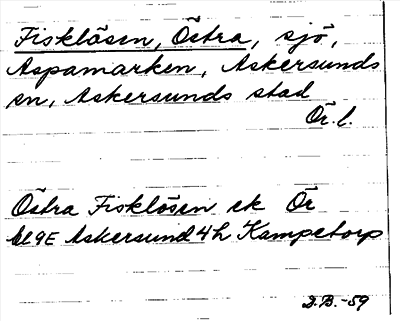 Fisklösen, Östra, sjö,
Aspamarken, Askersunds
sn, Askersunds stad
Ör. l.
Östra Fisklösen ek Ör
9E Askersund 4h Kampetorp
J.B. -59